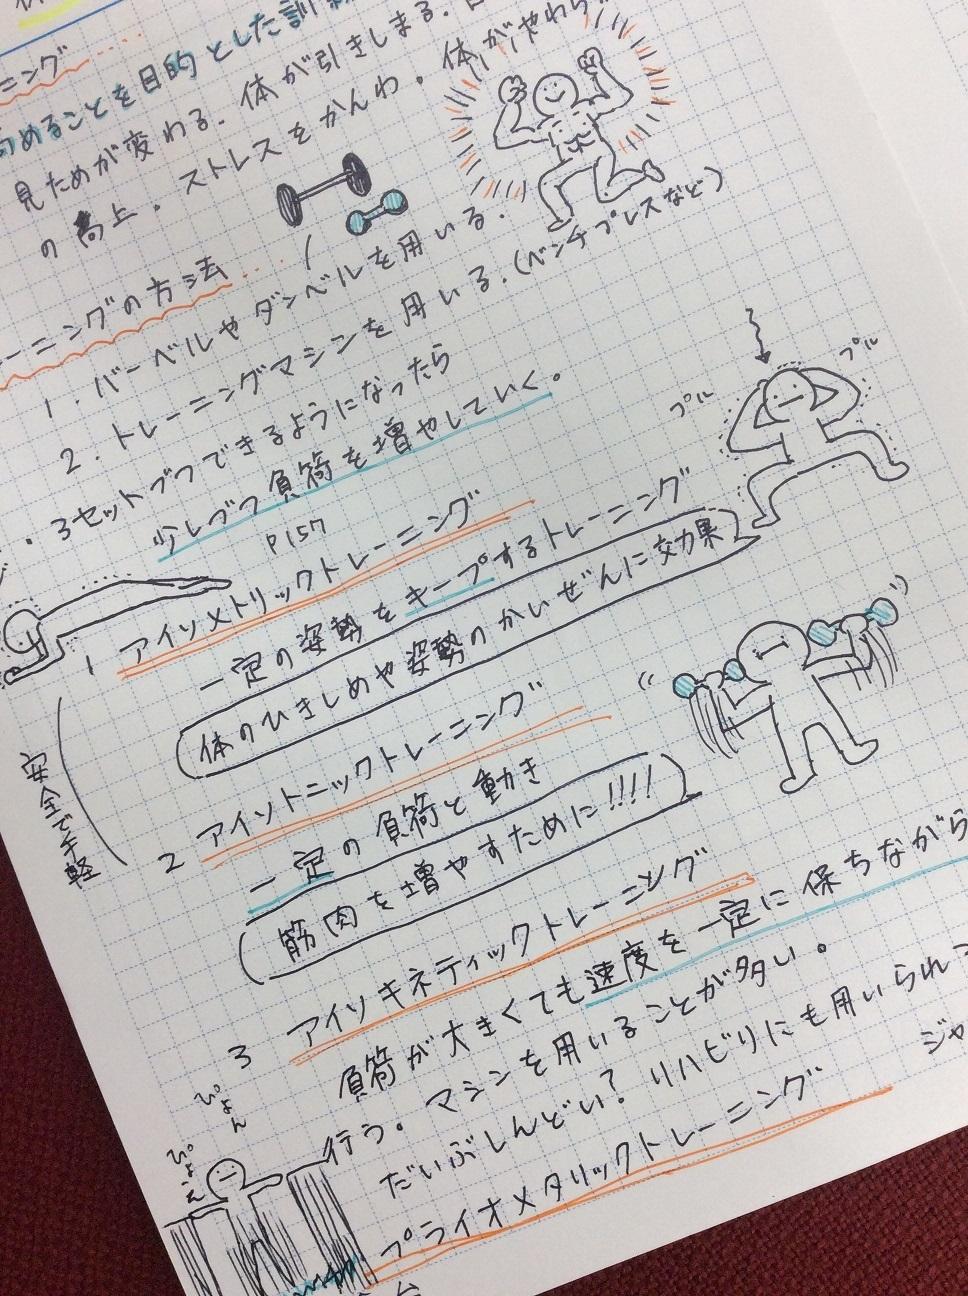 ニング
めることを目的とした訓
見ためが変わる. 体が引きしまる.
の向上. ストレスをかんわ. 体がやわら
ーニングの方法
1. バーベルやダンベルを用いる.
2. トレーニングマシンを用いる. (ベンチプレスなど)
・3セットづつできるようになったら
少しづつ負荷を増やしていく。
P157
プル
プル
1 アイソメトリックトレーニング
一定の姿勢をキープするトレーニング
体のひきしめや姿勢のかいぜんに効果
安全で手軽
2 アイソトニックトレーニング
一定の負荷と動き
筋肉を増やすために!!!!
3 アイソキネティックトレーニング
負荷が大きくても速度を一定に保ちながら
行う。マシンを用いることが多い。
だいぶしんどい? リハビリにも用いられ
ジャ
ぴょん
ぴょん
プライオメタリックトレーニング